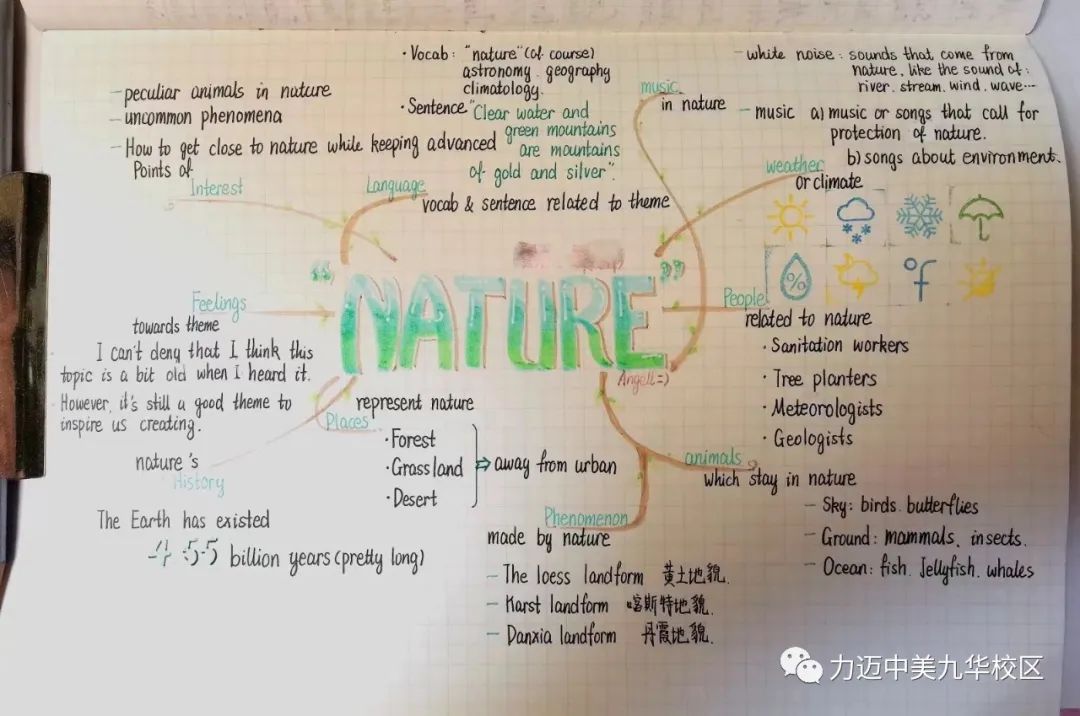 - peculiar animals in nature
- uncommon phenomena
- How to get close to nature while keeping advanced
Points of
Interest
· Vocab: "nature" (of course)
astronomy. geography
climatology.
· Sentence "Clear water and
green mountains
are mountains
of gold and silver".
Language
vocab & sentence related to theme
music
in nature
- white noise: sounds that come from
nature, like the sound of:
river. stream. wind. wave...
- music a) music or songs that call for
protection of nature.
b) songs about environment.
weather
or climate
%
°F
"NATURE"
Angell =)
Feelings
towards theme
I can't deny that I think this
topic is a bit old when I heard it.
However, it's still a good theme to
inspire us creating.
People
related to nature
· Sanitation workers
· Tree planters
· Meteorologists
· Geologists
Places
represent nature
· Forest
· Grassland
· Desert
⇒ away from urban
nature's
History
The Earth has existed
4.55 billion years (pretty long)
animals
which stay in nature
- Sky: birds. butterflies
- Ground: mammals、insects.
- Ocean: fish. Jellyfish. whales
Phenomenon
made by nature
- The loess landform 黄土地貌.
- Karst landform 喀斯特地貌.
- Danxia landform 丹霞地貌.
力迈中美九华校区